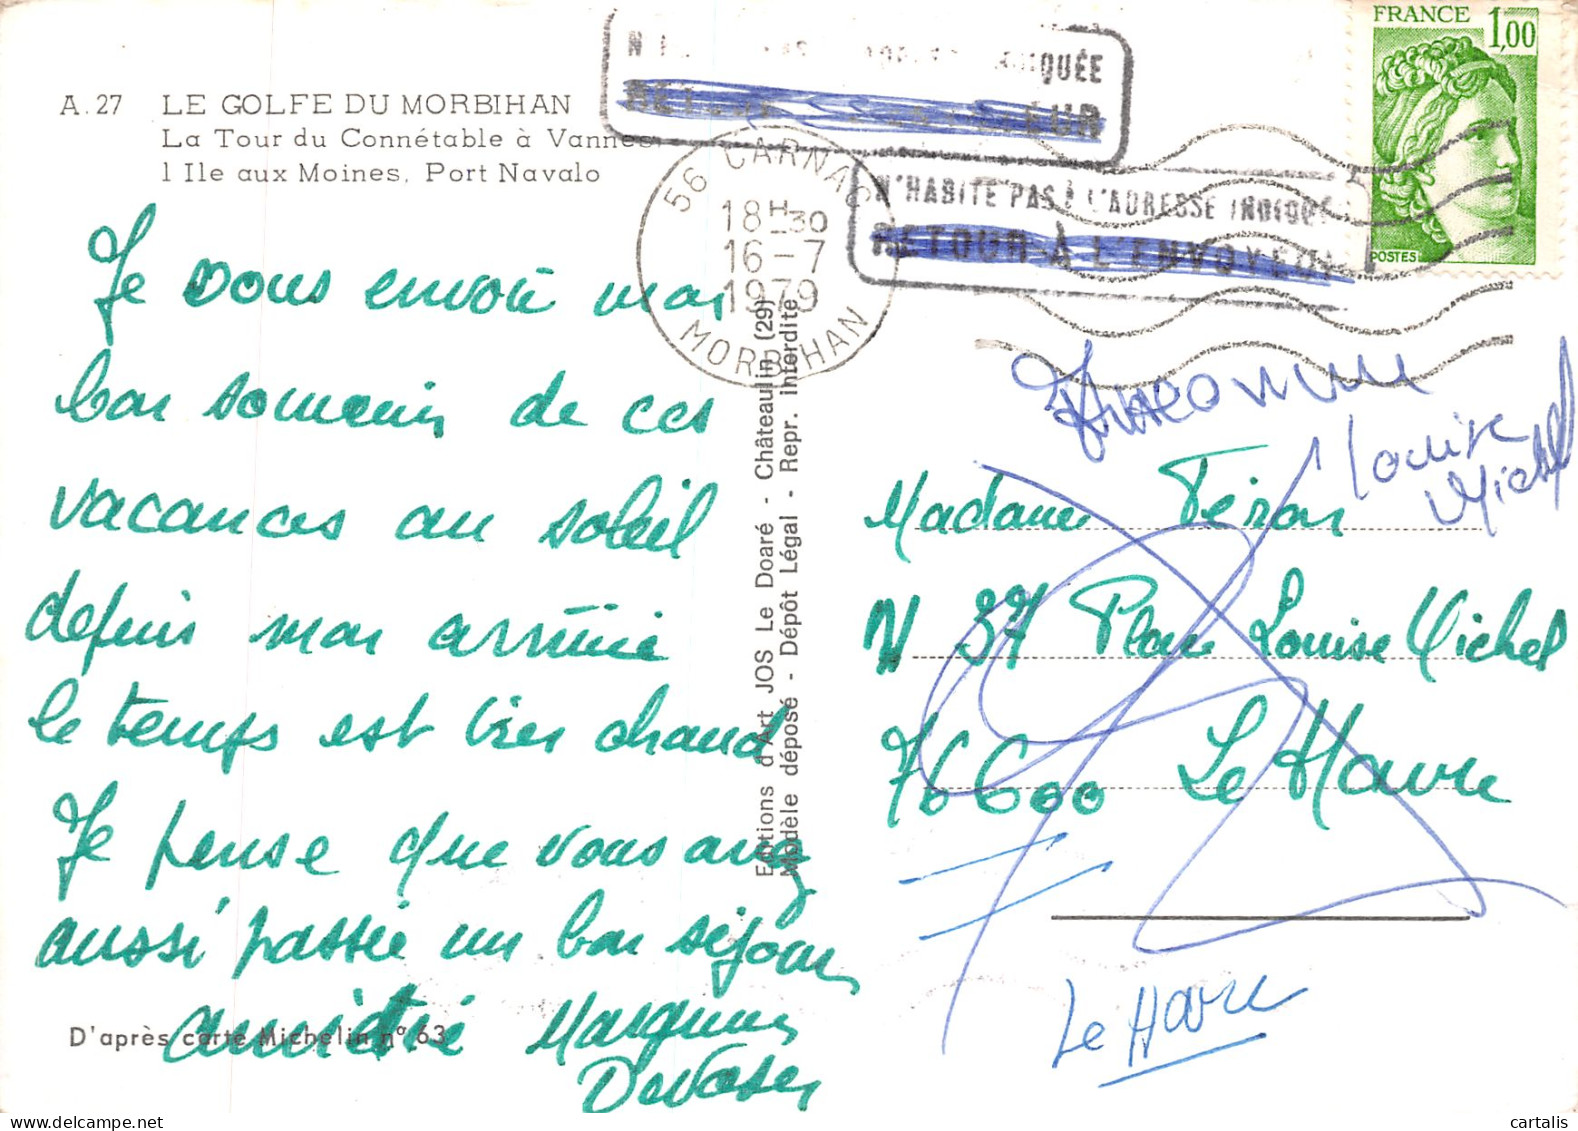 A. 27 LE GOLFE DU MORBIHAN
La Tour du Connétable à Vannes
l Ile aux Moines, Port Navalo
Je vous envoie mon
bon souvenir de ces
vacances au soleil
depuis mon arrivée
le temps est bien chaud
Je pense que vous avez
aussi passée un bon séjour
amitié
D'après carte Michelin n° 63
Editions d'Art JOS Le Doaré - Châteaulin (29)
Modèle déposé - Dépôt Légal - Repr. Interdite
IQUÉE
56 CARNAC
18H30
16-7
1979
MORBIHAN
N'HABITE PAS À L'ADRESSE INDIQUÉ
RETOUR À L'ENVOYEUR
FRANCE 1,00
POSTES
Inconnu
Louise
Michel
Madame
N 37 Place Louise Michel
76600 Le Havre
Le Havre
cartalis.com